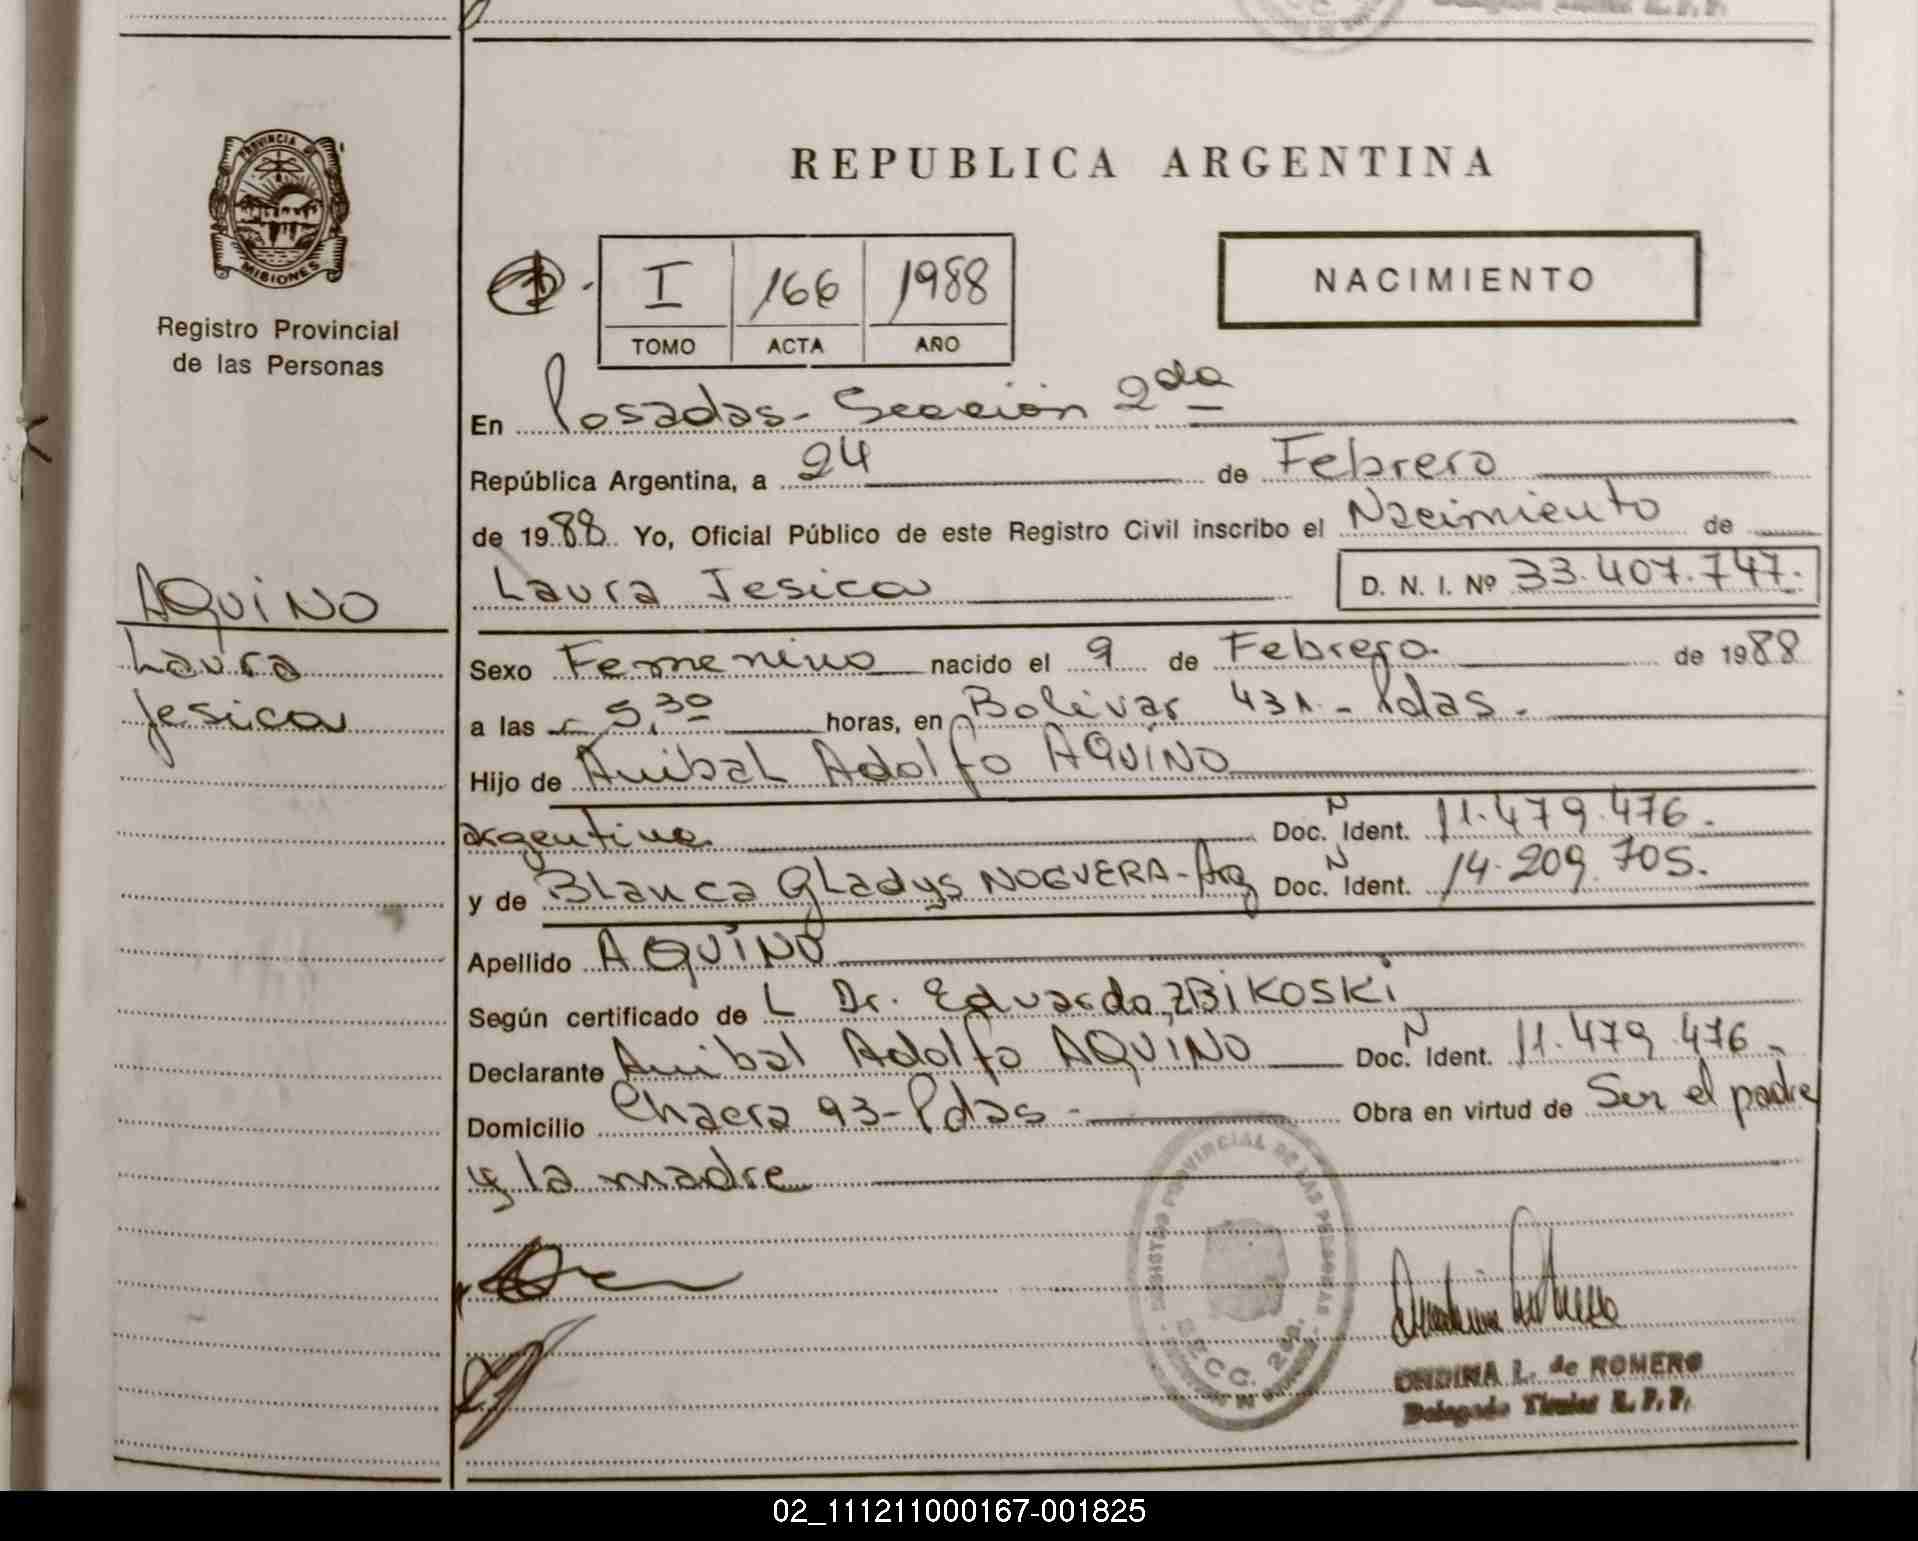 PROVINCIA DE
MISIONES
Registro Provincial
de las Personas
REPUBLICA ARGENTINA
I 166 1988
TOMO ACTA AÑO
NACIMIENTO
En Posadas - Sección 2da
República Argentina, a 24 de Febrero
de 1988 Yo, Oficial Público de este Registro Civil inscribo el Nacimiento de
Laura Jesica D. N. I. Nº 33.407.747.
AQUINO
Laura
Jesica
Sexo Femenino nacido el 9 de Febrero. de 1988
a las 5,30 horas, en Bolivar 431 - Pdas.
Hijo de Anibal Adolfo AQUINO
argentino Doc. N Ident. 11.479.476.
y de Blanca Gladys NOGUERA - Arg Doc. N Ident. 14.209.705.
Apellido AQUINO
Según certificado de L Dr. Eduardo ZBIKOSKI
Declarante Anibal Adolfo AQUINO Doc. N Ident. 11.479.476.
Domicilio Chacra 93 - Pdas - Obra en virtud de Ser el padre
y la madre
REGISTRO PROVINCIAL DE LAS PERSONAS
SECC. 2da.
ONDINA L. de ROMERO
Delegado Titular R. P. P.
02_111211000167-001825